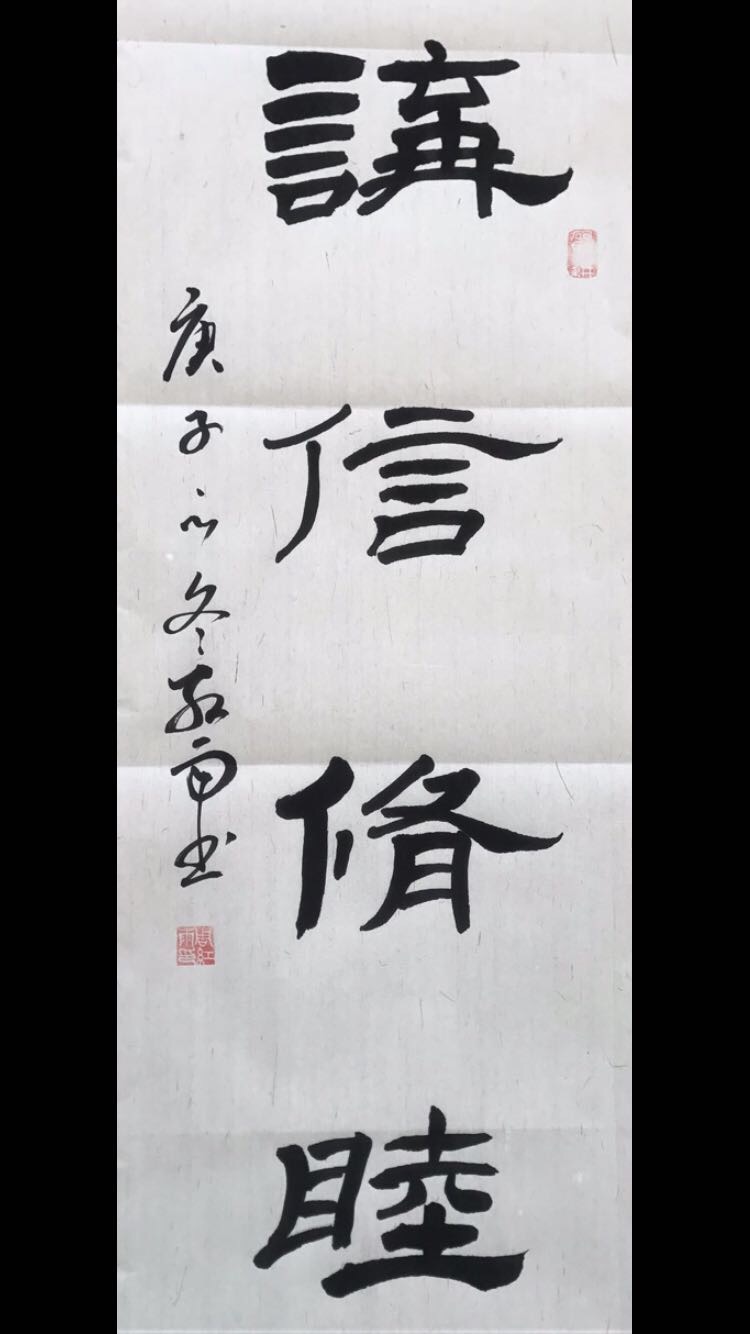 講信脩睦
庚子之冬雨书